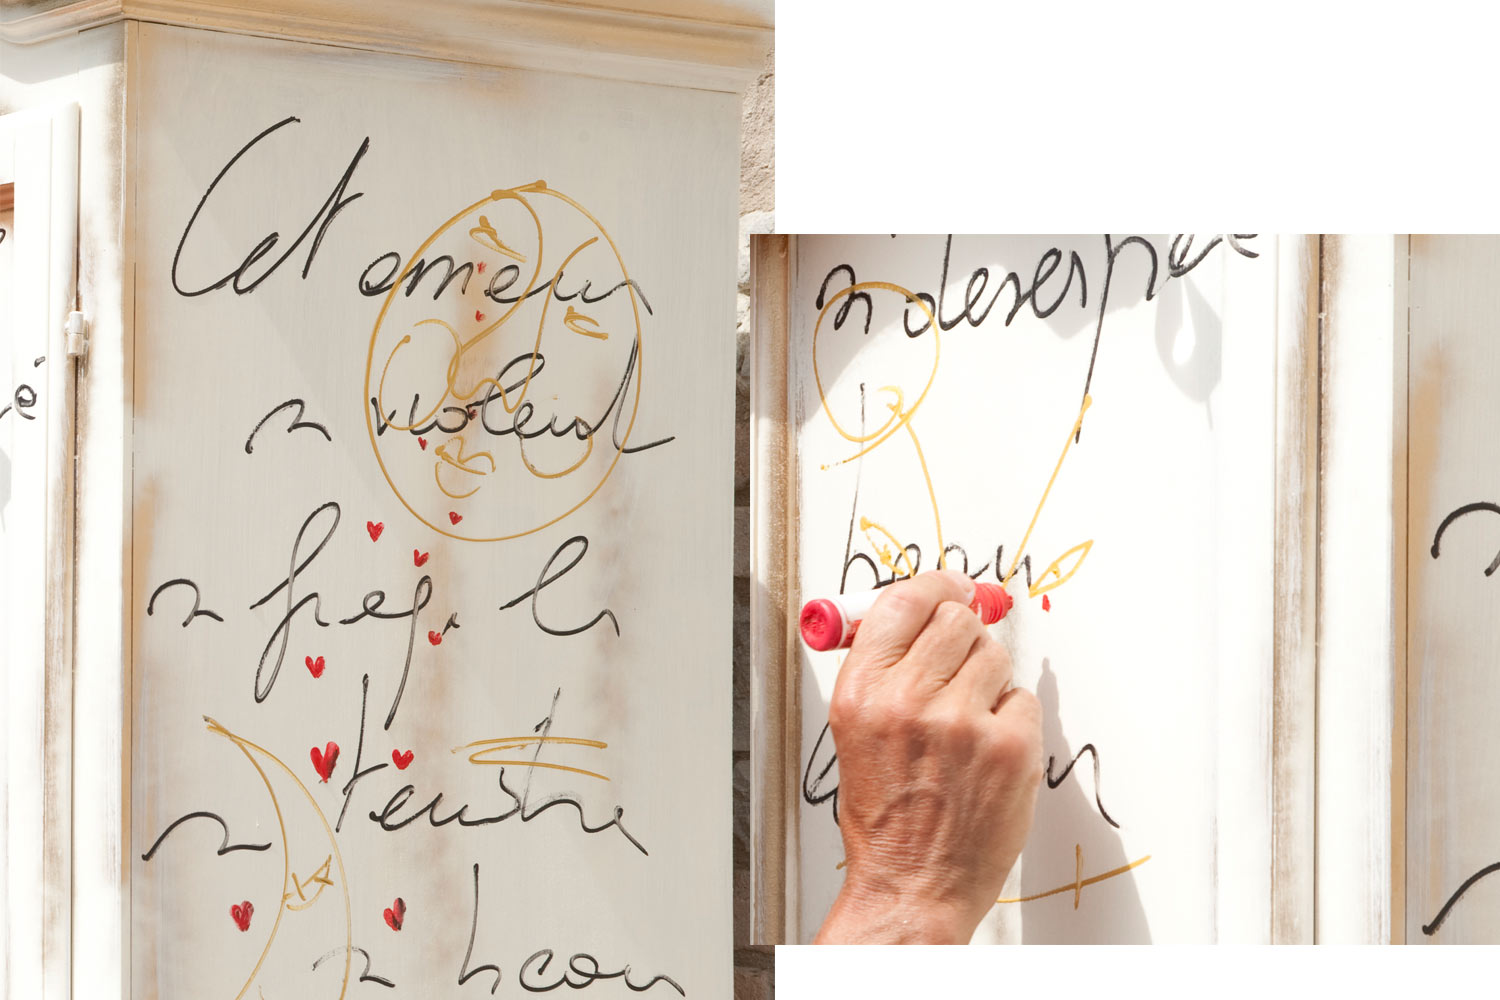 Cet amour
si violent
si fragile
si tendre
si beau
si desespéré
beau